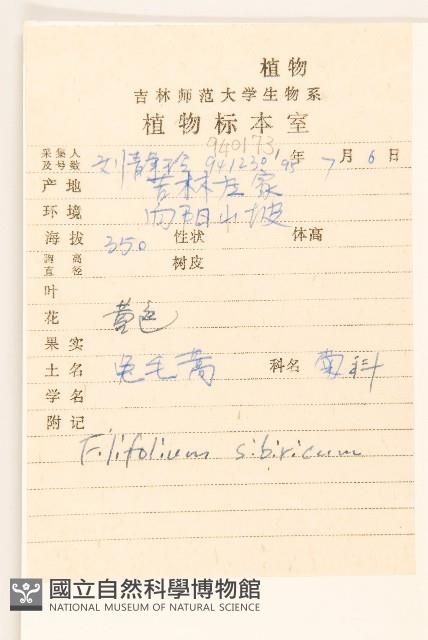 植物
吉林师范大学生物系
植物标本室
940173
采集人及号数 刘静玲 941230 '95年 7月 6日
产地 吉林左家
环境 向阳山坡
海拔 350 性状 体高
胸高直径 树皮
叶
花 黄色
果实
土名 兔毛蒿 科名 菊科
学名
附记
Filifolium sibiricum
國立自然科學博物館
NATIONAL MUSEUM OF NATURAL SCIENCE